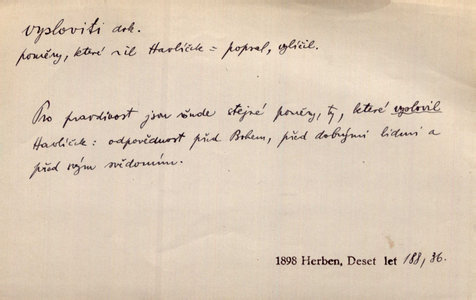 vysloviti dok.
poměry, které žil Havlíček = popsal, vylíčil.
Pro pravdivost jsou všude stejné poměry, ty, které vyslovil
Havlíček: odpovědnost před Bohem, před dobrými lidmi a
před svým svědomím.
1898 Herben, Deset let 188, 36.